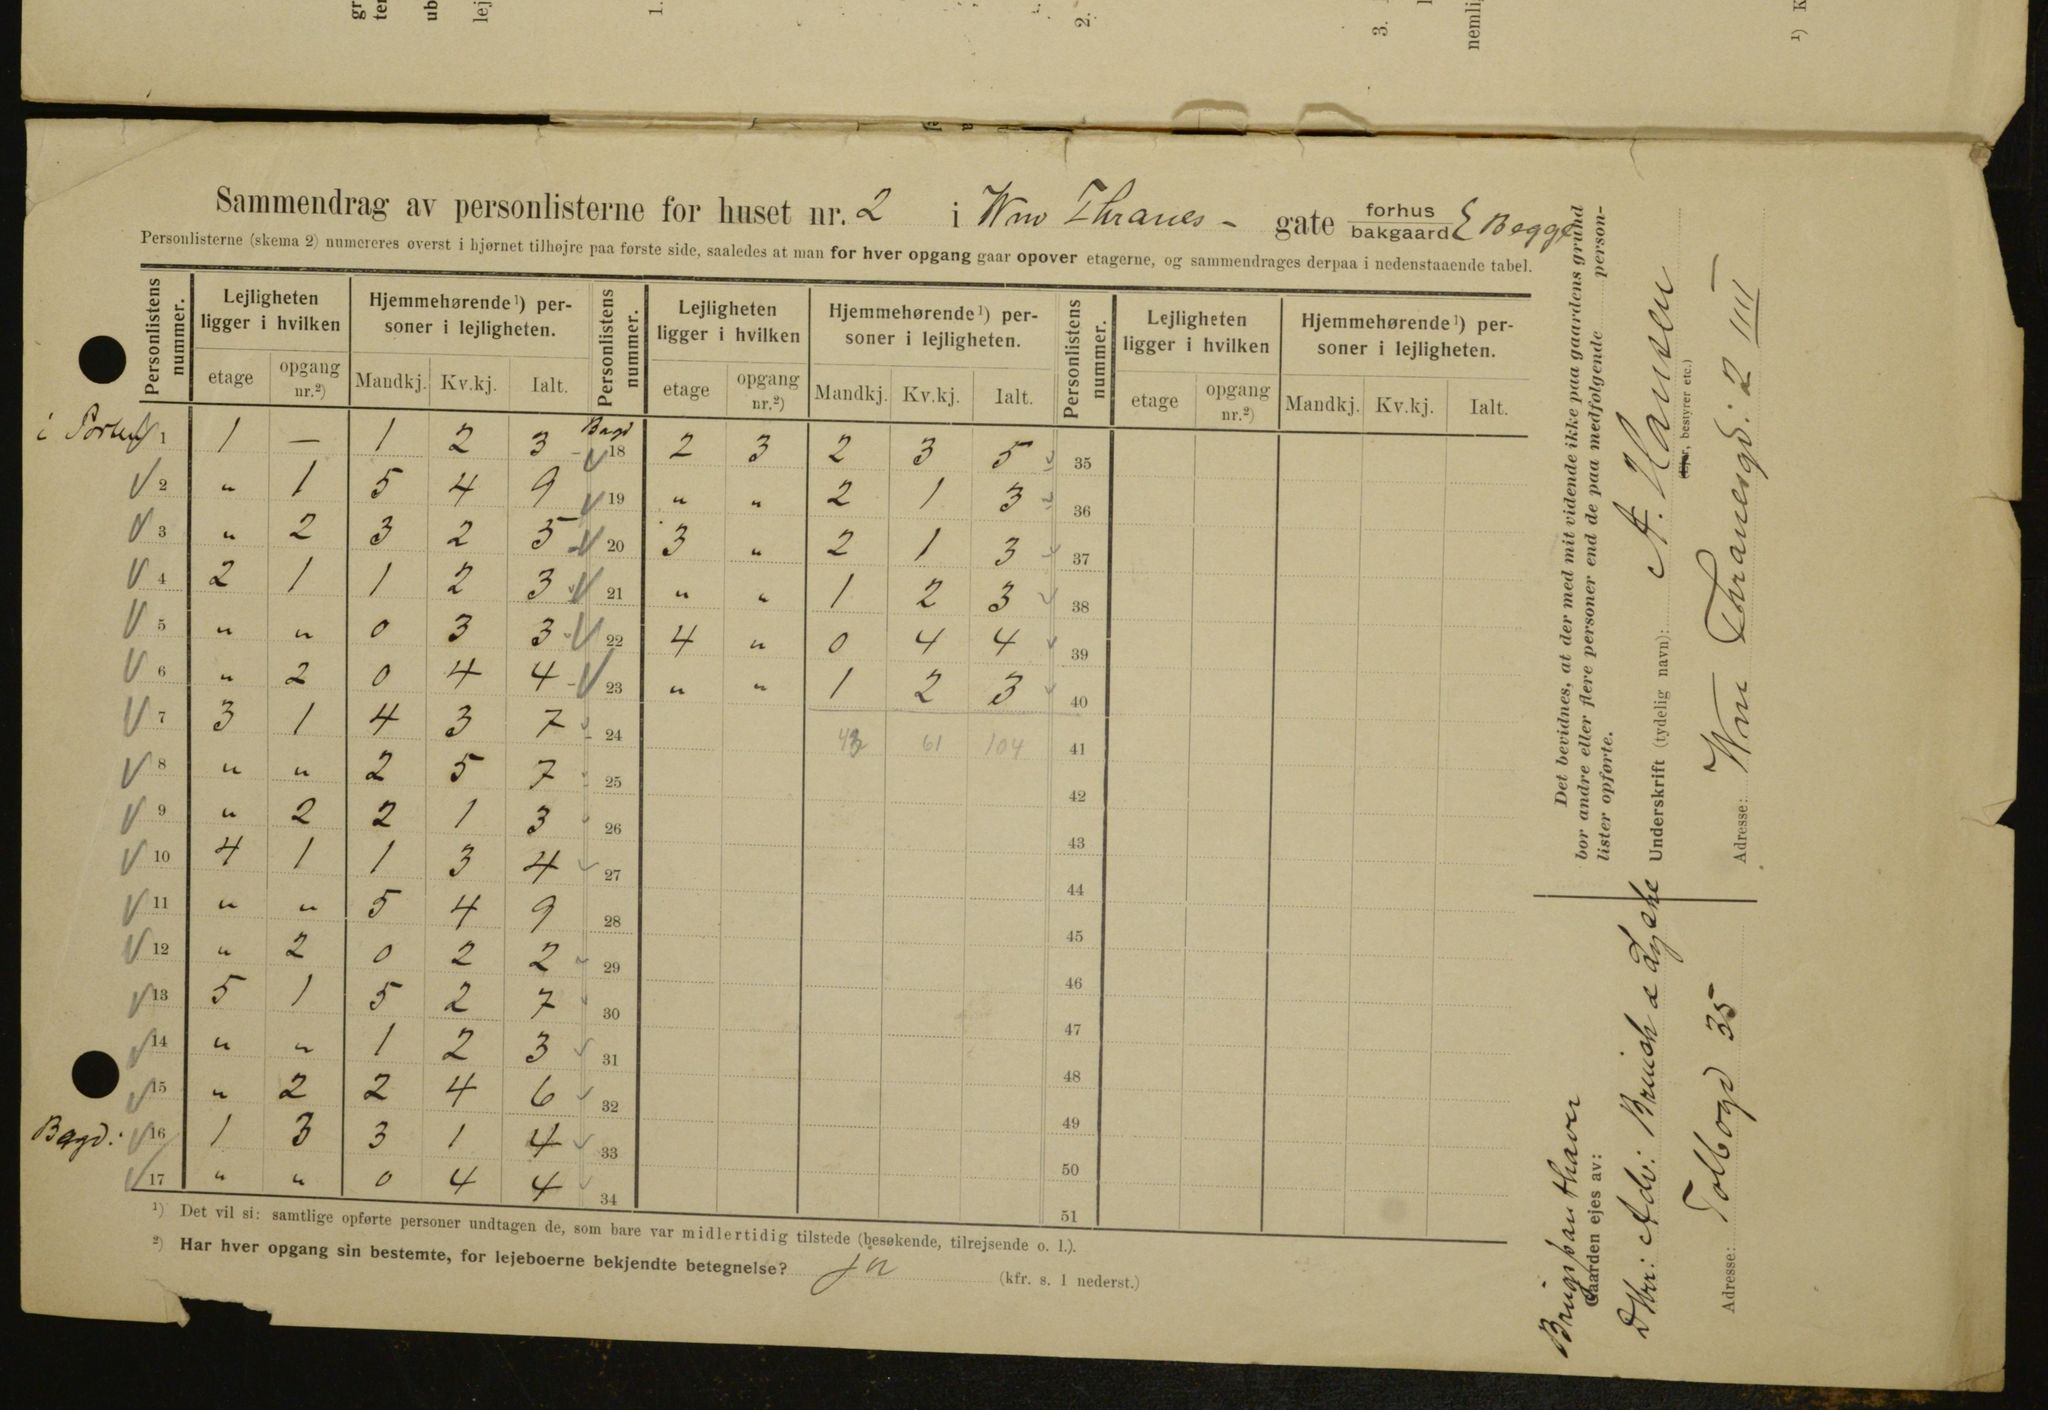 Sammendrag av personlisterne for huset nr. 2 i Wm Thranes - gate forhus bakgaard Begge
Personlisterne (skema 2) numereres øverst i hjørnet tilhøjre paa første side, saaledes at man for hver opgang gaar opover etagerne, og sammendrages derpaa i nedenstaaende tabel.
Personlistens nummer. Lejligheten ligger i hvilken Hjemmehørende ¹) personer i lejligheten. Personlistens nummer. Lejligheten ligger i hvilken Hjemmehørende ¹) personer i lejligheten. Personlistens nummer. Lejligheten ligger i hvilken Hjemmehørende ¹) personer i lejligheten.
etage opgang nr.²) Mandkj. Kv.kj. Ialt. etage opgang nr.²) Mandkj. Kv.kj. Ialt. etage opgang nr.²) Mandkj. Kv.kj. Ialt.
i Porten 1 1 — 1 2 3 Bagd 18 2 3 2 3 5 35
2 " 1 5 4 9 19 " " 2 1 3 36
3 " 2 3 2 5 20 3 " 2 1 3 37
4 2 1 1 2 3 21 " " 1 2 3 38
5 " " 0 3 3 22 4 " 0 4 4 39
6 " 2 0 4 4 23 " " 1 2 3 40
7 3 1 4 3 7 24 61 104 41
8 " " 2 5 7 25 42
9 " 2 2 1 3 26 43
10 4 1 1 3 4 27 44
11 " " 5 4 9 28 45
12 " 2 0 2 2 29 46
13 5 1 5 2 7 30 47
14 " " 1 2 3 31 48
15 " 2 2 4 6 32 49
Bagd: 16 1 3 3 1 4 33 50
17 " " 0 4 4 34 51
¹) Det vil si: samtlige opførte personer undtagen de, som bare var midlertidig tilstede (besøkende, tilrejsende o. l.).
²) Har hver opgang sin bestemte, for lejeboerne bekjendte betegnelse? ja (kfr. s. 1 nederst.)
Det bevidnes, at der med mit vidende ikke paa gaardens grund
bor andre eller flere personer end de paa medfølgende personlister opførte.
Underskrift (tydelig navn): A. Hansen
(Ejer, bestyrer etc.)
Adresse: Wm Thranesgd: 2 IIII
Gaarden ejes av:
Adv:
Adresse: Tolbogd 35